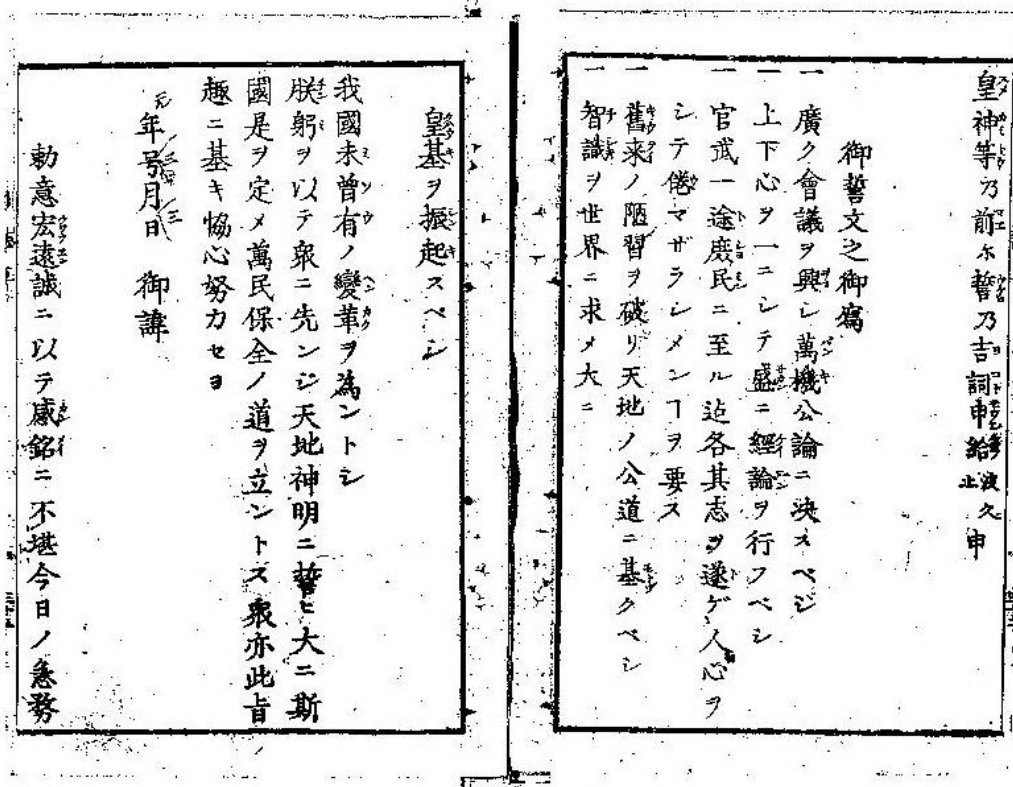 皇神等乃前尓誓乃吉詞申給波久止申
御誓文之御寫
一廣ク會議ヲ興シ萬機公論ニ決スベシ
一上下心ヲ一ニシテ盛ニ經論ヲ行フベシ
一官武一途庶民ニ至ル迠各其志ヲ遂ゲ人心ヲ
シテ倦マザラシメンヿヲ要ス
一舊来ノ陋習ヲ破リ天地ノ公道ニ基クベシ
一智識ヲ世界ニ求メ大ニ
皇基ヲ振起スベシ
我國未曾有ノ變革ヲ為ントシ
朕躬ヲ以テ衆ニ先ンジ天地神明ニ誓ヒ大ニ斯
國是ヲ定メ萬民保全ノ道ヲ立ントス衆亦此旨
趣ニ基キ恊心努力セヨ
年号月日 御諱
勅意宏遠誠ニ以テ感銘ニ不堪今日ノ急務